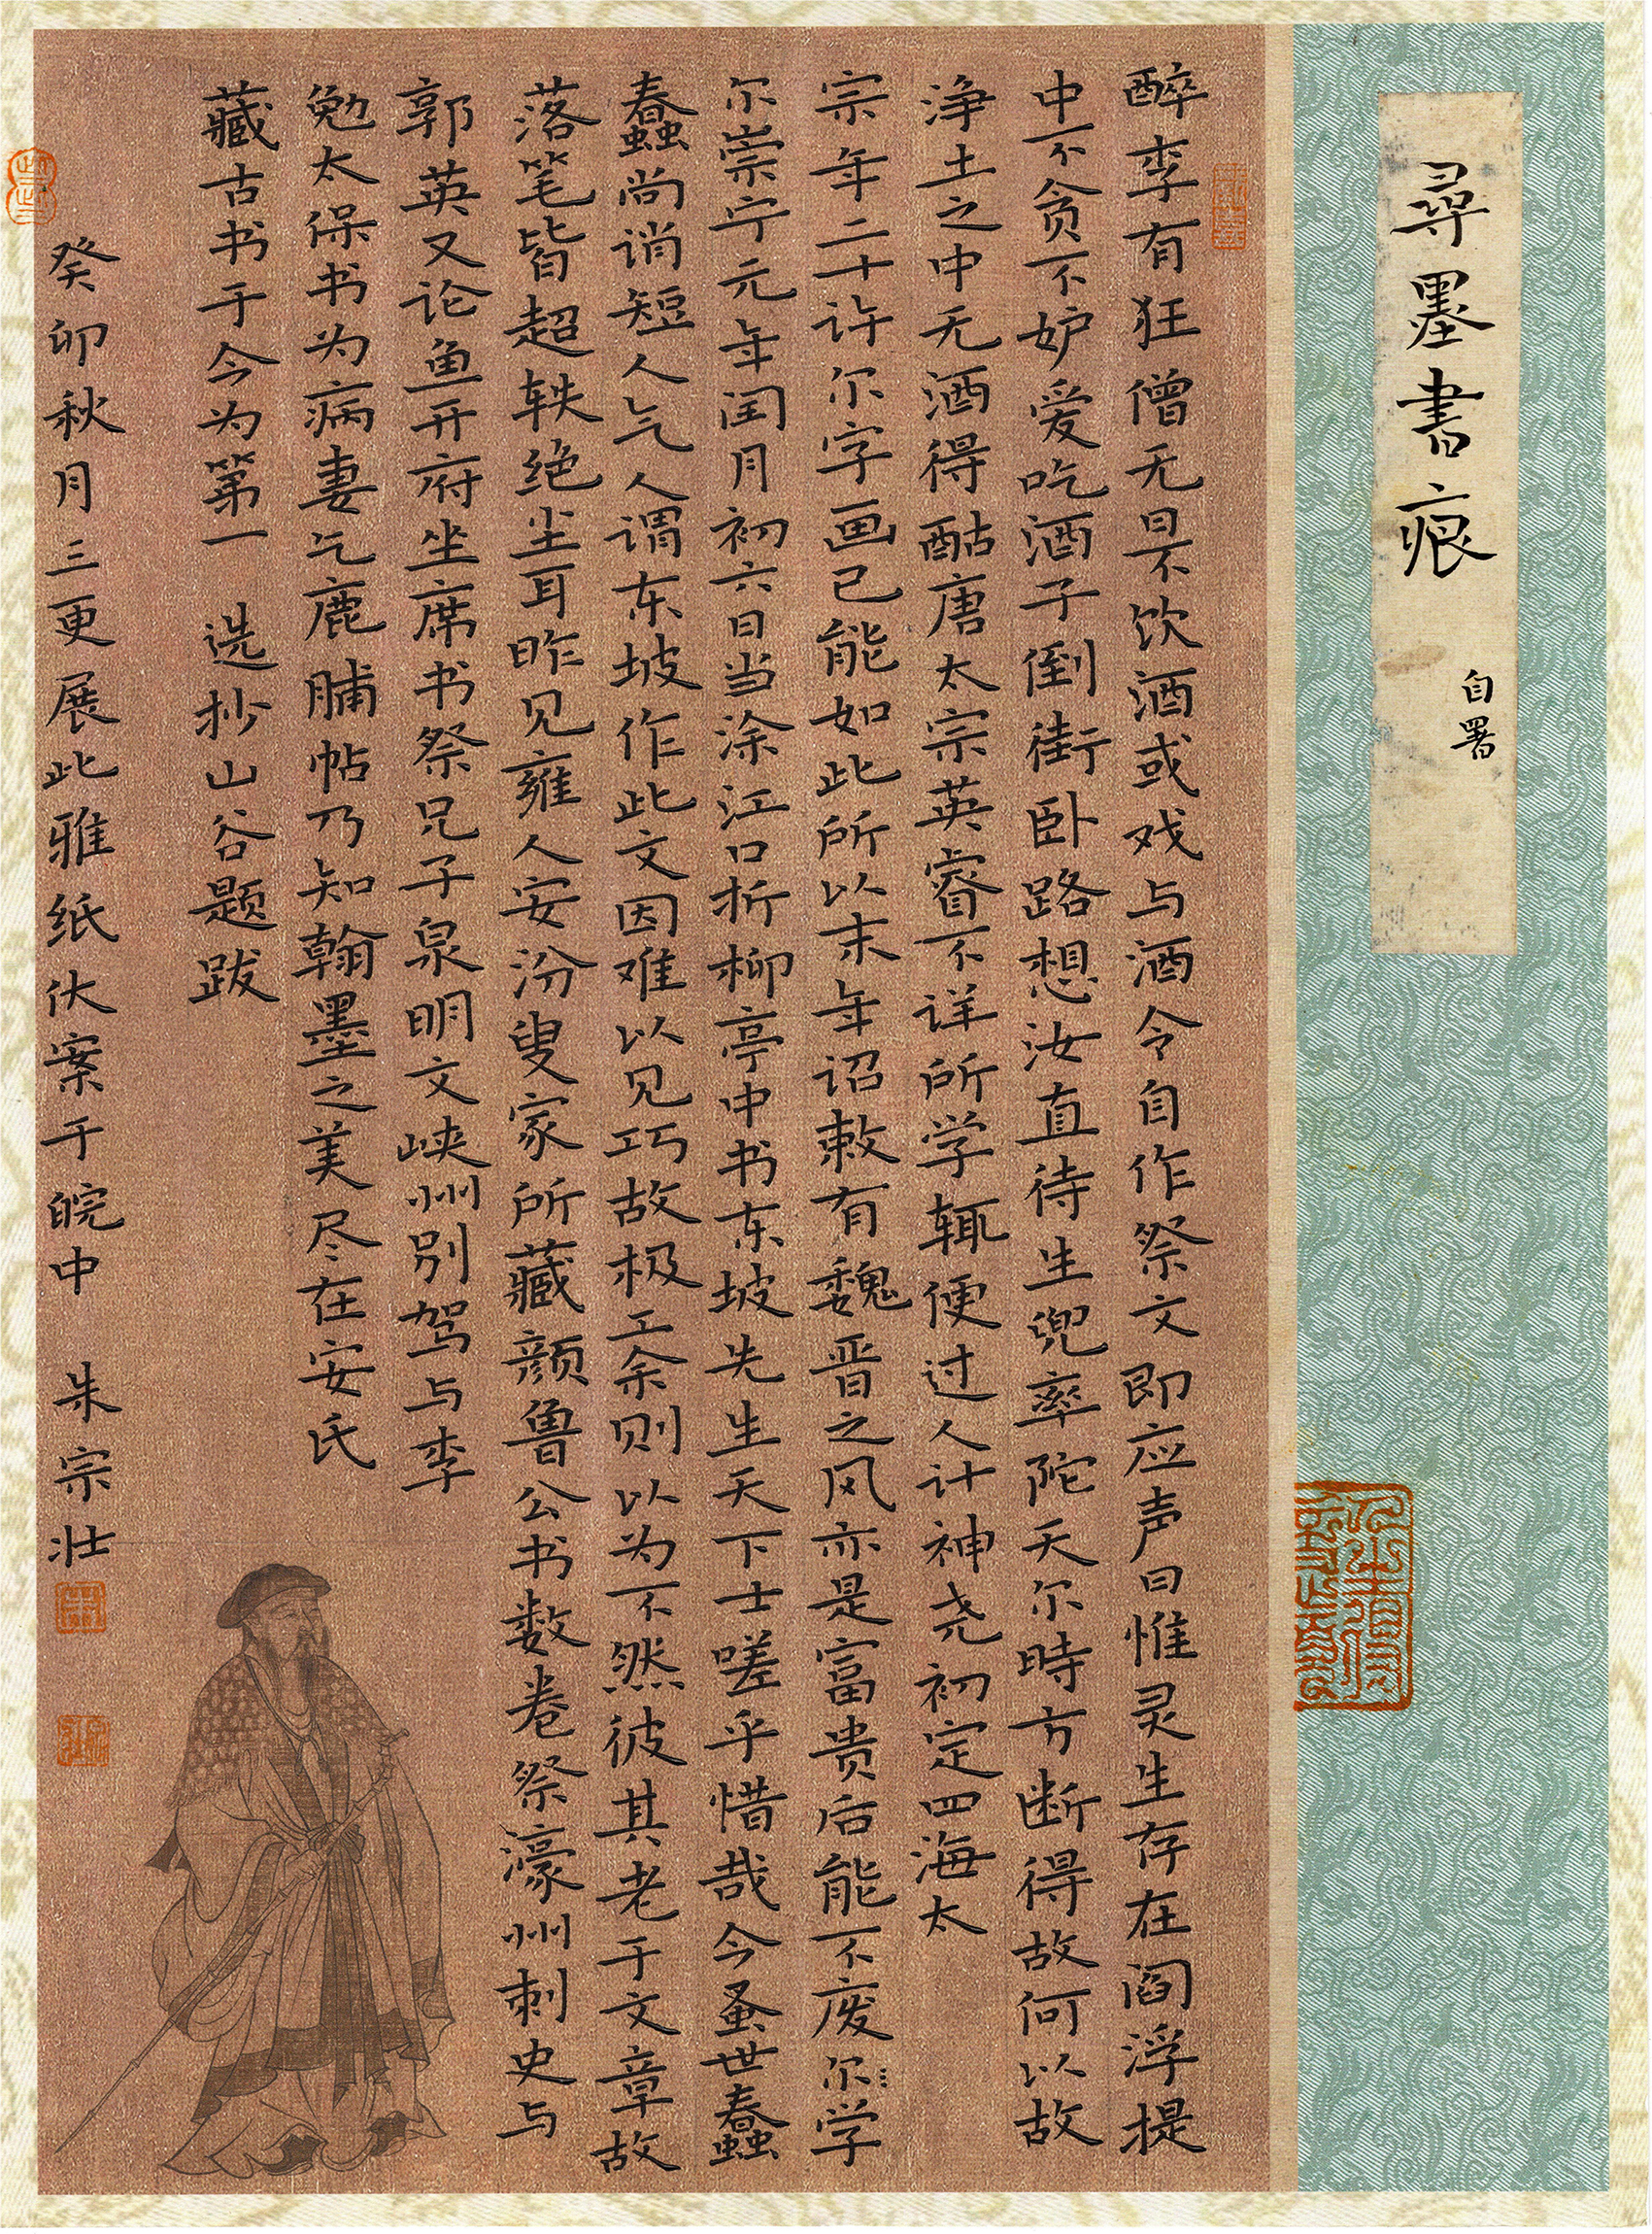 尋墨書痕
自署
醉李有狂僧无日不饮酒或戏与酒令自作祭文即应声曰惟灵生存在阎浮提
中不贪不妒爱吃酒子倒街卧路想汝直待生兜率陀天尔時方断得故何以故
浄土之中无酒得酤唐太宗英睿不详所学辄便过人计神尧初定四海太
宗年二十许尔字画已能如此所以末年诏敕有魏晋之风亦是富贵后能不废尔学
尔崇宁元年闰月初六日当涂江口折柳亭中书东坡先生天下士嗟乎惜哉今蚤世蠢
蠢尚诮短人气人谓东坡作此文因难以见巧故极工余则以为不然彼其老于文章故
落笔皆超轶绝尘耳昨见雍人安汾叟家所藏颜鲁公书数卷祭濠州刺史与
郭英又论鱼开府坐席书祭兄子泉明文峡州别驾与李
勉太保书为病妻乞鹿脯帖乃知翰墨之美尽在安氏
藏古书于今为第一 选抄山谷题跋
癸卯秋月三更展此雅纸伏案于皖中 朱宗壮